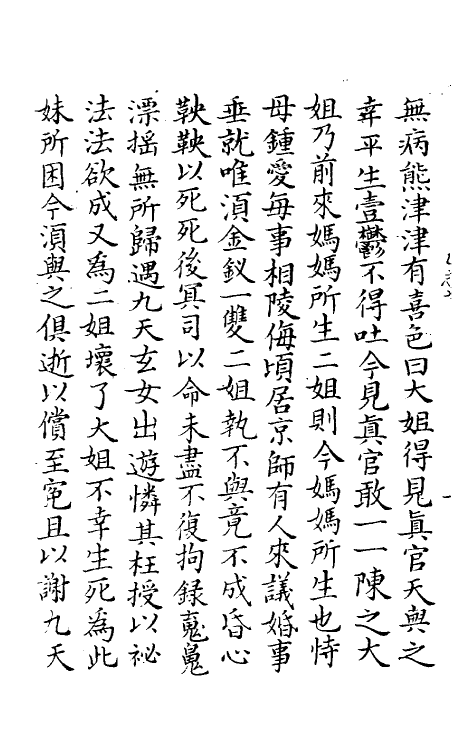 無病態津津有喜色曰大姐得見眞官天與之
幸平生壹鬱不得吐今見眞官敢一一陳之大
姐乃前來媽媽所生二姐則今媽媽所生也恃
母鍾愛毎事相陵侮頃居京師有人來議婚事
垂就唯須金釵一雙二姐執不與竟不成昏心
鞅鞅以死死後冥司以命未盡不復拘錄䰟鬼
漂揺無所歸遇九天玄女出遊憐其枉授以祕
法法欲成又爲二姐壞了大姐不幸生死爲此
妹所困今須與之俱逝以償至寃且以謝九天